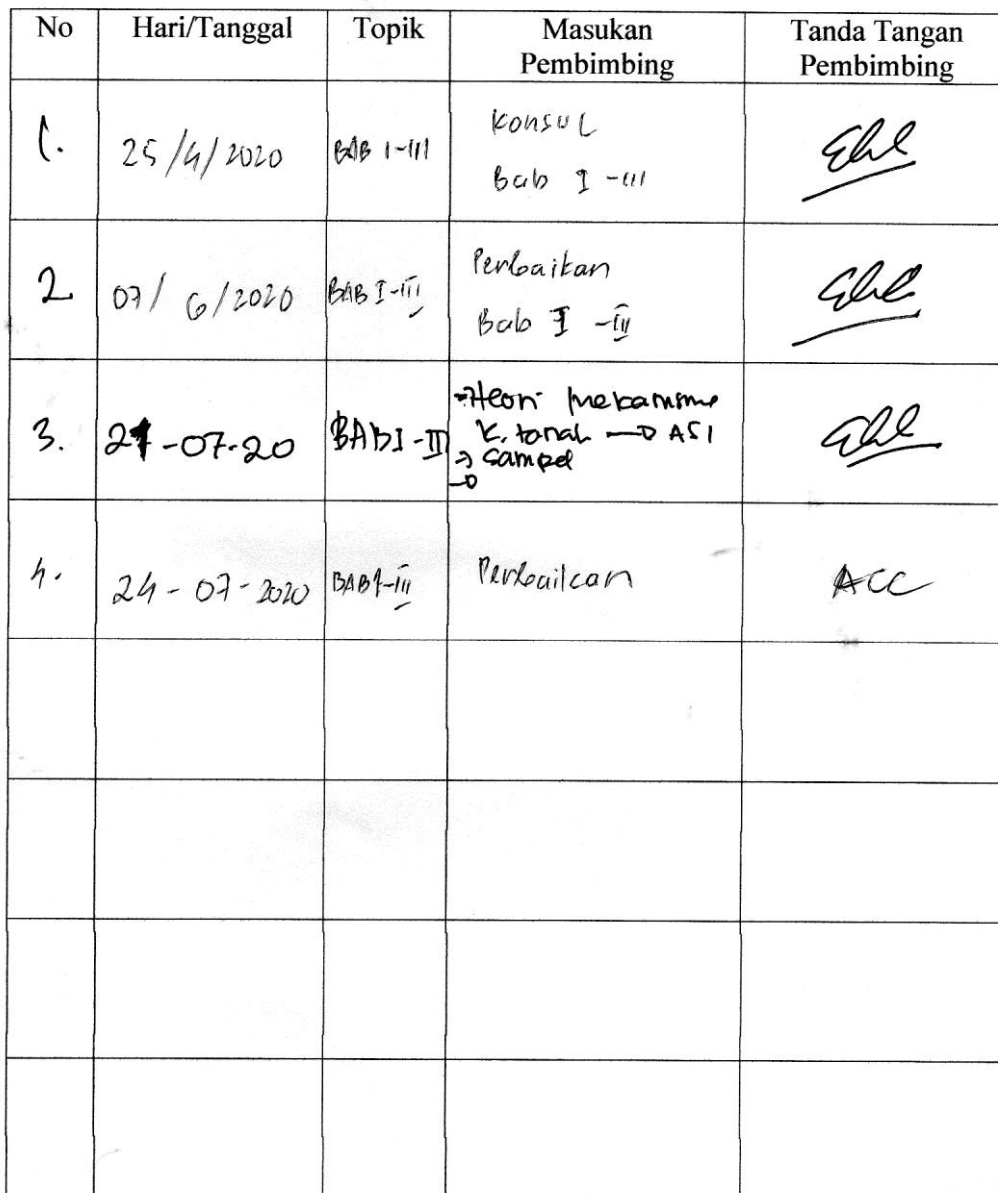 No Hari/Tanggal Topik Masukan Pembimbing Tanda Tangan Pembimbing
1. 25/4/2020 BAB I-III Konsul
Bab I-III
2 07/6/2020 BAB I-III Perbaikan
Bab I-III
3. -07-20 BAB I-III →Teori mekanisme
K. tanah → ASI
→ Sampel
→
4. 24-07-2020 BAB I-III Perbaikan ACC